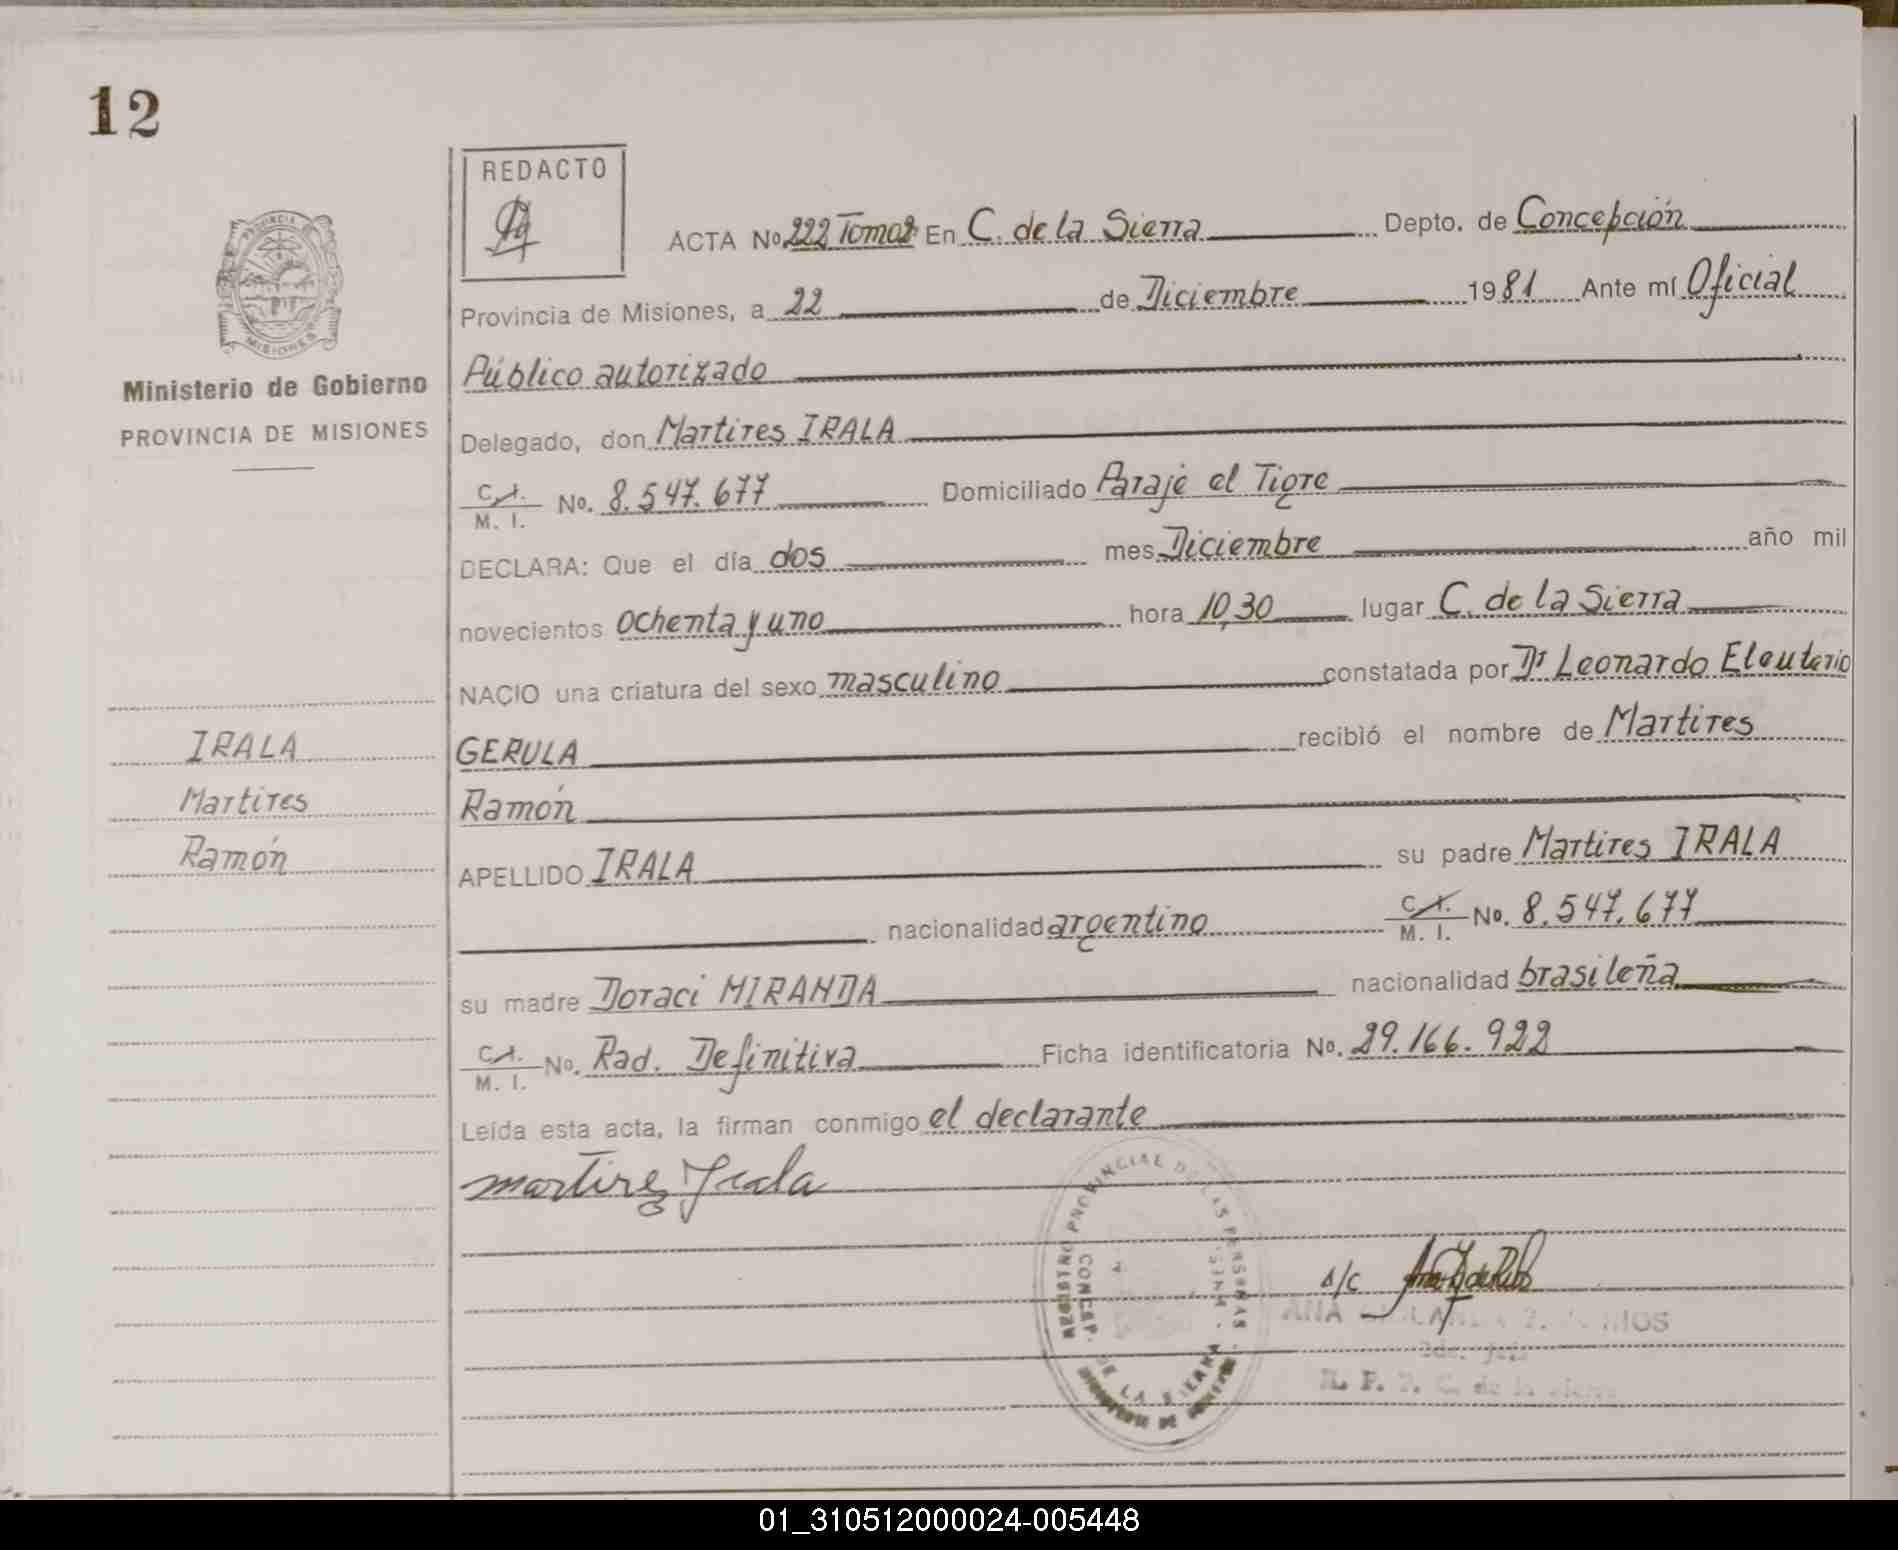 12
REDACTO
ACTA No 222 Tomo 2 En C. de la Sierra Depto. de Concepción
Provincia de Misiones, a 22 de Diciembre 1981 Ante mí Oficial
Público autorizado
Delegado, don Martires IRALA
C. I. M. I. No. 8.547.677 Domiciliado Paraje el Tigre
DECLARA: Que el día dos mes Diciembre año mil
novecientos ochenta y uno hora 10,30 lugar C. de la Sierra
NACIO una criatura del sexo masculino constatada por Dr Leonardo Eleuterio
GERULA recibió el nombre de Martires
Ramón
APELLIDO IRALA su padre Martires IRALA
nacionalidad argentino C. I. M. I. No. 8.547.677
su madre Doraci MIRANDA nacionalidad brasileña
C. I. M. I. No. Rad. Definitiva Ficha identificatoria No. 29.166.922
Leída esta acta, la firman conmigo el declarante
martires Irala
a/c
ANA
R. P. P. C. de la Sierra
REGISTRO PROVINCIAL DE LAS PERSONAS
CONCEP. DE LA SIERRA
PROVINCIA
MISIONES
Ministerio de Gobierno
PROVINCIA DE MISIONES
IRALA
Martires
Ramón
01_310512000024-005448